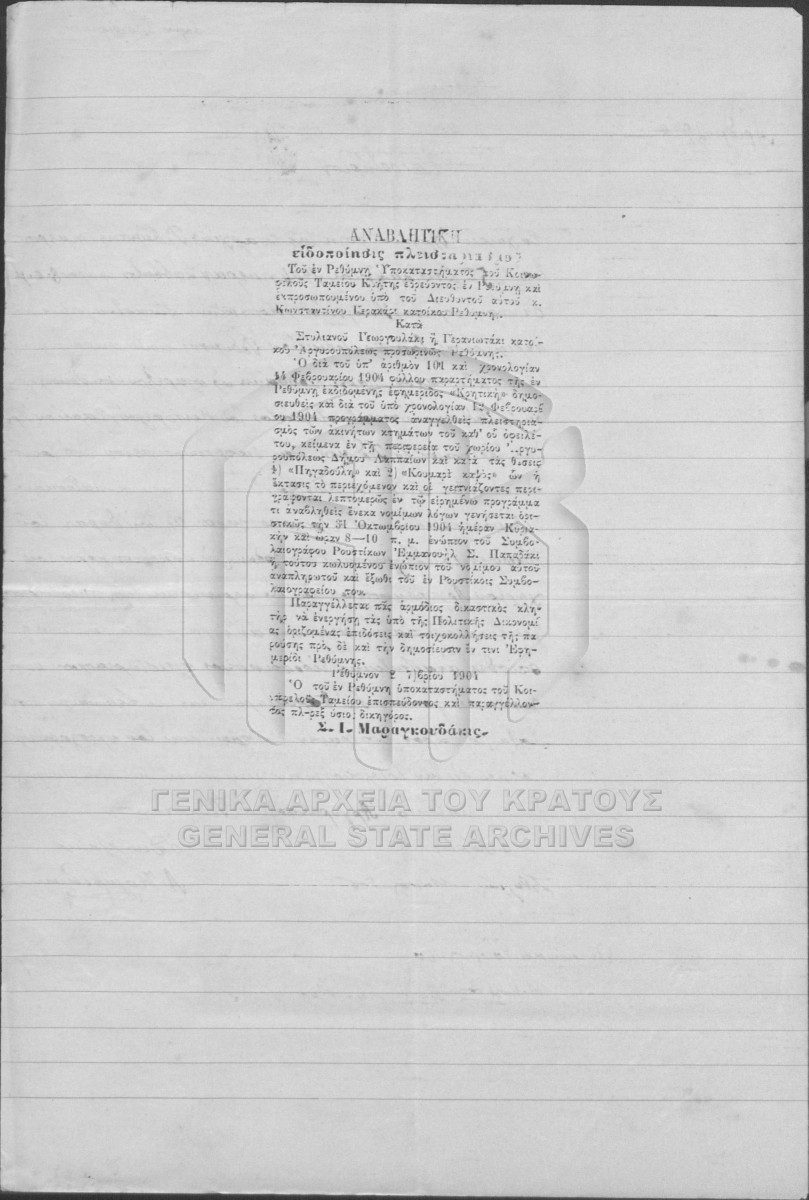 ΑΝΑΒΛΗΤΙΚΗ
εἰδοποίησις πλειστηριασμοῦ
Τοῦ ἐν Ρεθύμνῃ Ὑποκαταστήματος τοῦ Κοινω-
φελοῦς Ταμείου Κρήτης ἑδρεύοντος ἐν Ρεθύμνῃ καὶ
ἐκπροσωπουμένου ὑπὸ τοῦ Διευθυντοῦ αὐτοῦ κ.
Κωνσταντίνου Γερακάρι κατοίκου Ρεθύμνης.
Κατὰ
Στυλιανοῦ Γεωργουλάκι ἢ Γερανιωτάκι κατοί-
κου Ἀργυρουπόλεως προσωρινῶς Ρεθύμνης.
Ὁ διὰ τοῦ ὑπ' ἀριθμὸν 101 καὶ χρονολογίαν
14 Φεβρουαρίου 1904 φύλλου παραρτήματος τῆς ἐν
Ρεθύμνῃ ἐκδιδομένης ἐφημερίδος «Κρητικὴ» δημο-
σιευθεὶς καὶ διὰ τοῦ ὑπὸ χρονολογίαν 12 Φεβρουαρί
ου 1904 προγράμματος ἀναγγελθεὶς πλειστηρια-
σμὸς τῶν ἀκινήτων κτημάτων τοῦ καθ' οὗ ὀφειλέ-
του, κείμενα ἐν τῇ περιφερείᾳ τοῦ χωρίου Ἀργυ-
ρουπόλεως Δήμου Λαππαίων καὶ κατὰ τὰς θέσεις
1) «Πηγαδούλη» καὶ 2) «Κουμαρὲ καφὸς» ὧν ἡ
ἔκτασις τὸ περιεχόμενον καὶ οἱ γειτνιάζοντες περι-
γράφονται λεπτομερῶς ἐν τῷ εἰρημένῳ προγράμμα
τι ἀναβληθεὶς ἕνεκα νομίμων λόγων γενήσεται ὁρι-
στικῶς τὴν 31 Ὀκτωμβρίου 1904 ἡμέραν Κυρια-
κὴν καὶ ὥραν 8—10 π. μ. ἐνώπιον τοῦ Συμβο-
λαιογράφου Ρουστίκων Ἐμμανουὴλ Σ. Παπαδάκι
ἢ τούτου κωλυομένου ἐνώπιον τοῦ νομίμου αὐτοῦ
ἀναπληρωτοῦ καὶ ἔξωθι τοῦ ἐν Ρουστίκοις Συμβο-
λαιογραφείου του.
Παραγγέλλεται πᾶς ἁρμόδιος δικαστικὸς κλη-
τὴρ νὰ ἐνεργήσῃ τὰς ὑπὸ τῆς Πολιτικῆς Δικονομί
ας ὁριζομένας ἐπιδόσεις καὶ τοιχοκολλήσεις τῆς πα
ρούσης πρὸ, δὲ καὶ τὴν δημοσίευσιν ἔν τινι Ἐφη-
μερίδι Ρεθύμνης.
Ρέθυμνον 2 7)βρίου 1904
Ὁ τοῦ ἐν Ρεθύμνῃ ὑποκαταστήματος τοῦ Κοι-
Ταμείου ἐπισπεύδοντος καὶ παραγγέλλον-
τος πληρεξούσιος δικηγόρος.
Σ. Ι. Μαραγκουδάκις.
ΓΕΝΙΚΑ ΑΡΧΕΙΑ ΤΟΥ ΚΡΑΤΟΥΣ
GENERAL STATE ARCHIVES